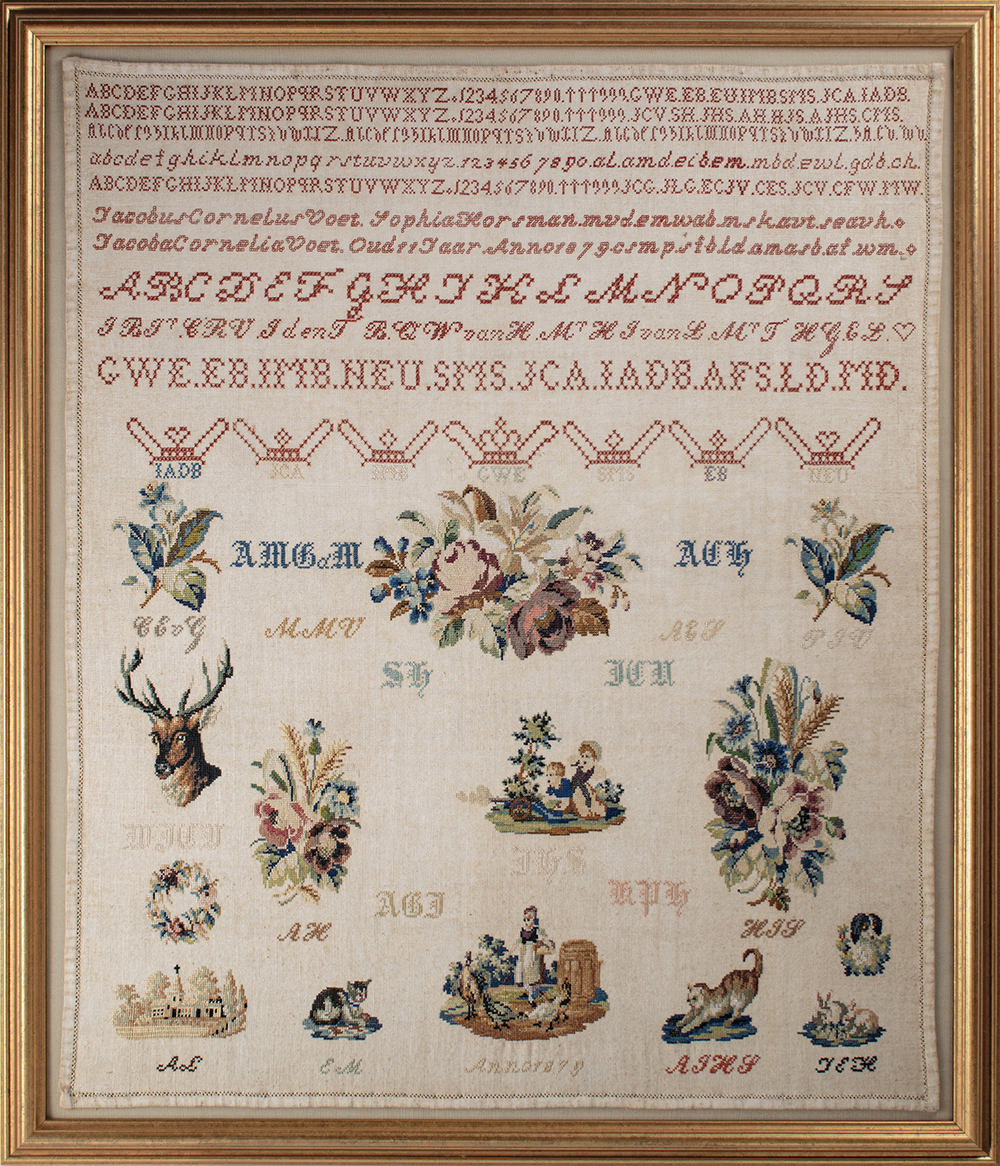 ABCDEFGHIJKLMNOPQRSTUVWXYZ.1234567890.†††999.GWE.EB.EU.IMB.SMS.JCA.IADB.
ABCDEFGHIJKLMNOPQRSTUVWXYZ.1234567890.†††999.JCV.SH.JHS.AH.HJS.AJHS.CMS.
abcdefghiklmnopqrstuvwxyz.1234567890.al.amd.ei.bem.mbd.ewl.gdb.ch.
ABCDEFGHIJKLMNOPQRSTUVWXYZ.1234567890.†††999.JCG.JLG.EC.JV.CES.JCV.CFW.MW.
JacobusCornelusVoet. SophiaHorsman.mvd.emwab.msk.avt.seavh.
JacobaCorneliaVoet. Oud11Jaar.Anno1879.csmpsfbld.amasb.af.wm.
ABCDEFGHIJKLMNOPQRS
IBJr CRV IdenT B.C.W van H. Mr HI van L. Mr T HGEL.♡
GWE.EB.IMB.NEU.SMS.JCA.IADB.AFS.LD.MD.
IADB JCA IMB GWE SMS EB NEU
AMGdM ACH
CEvG MMV AES PJV
SH JCV
WJCV
JHS
AGJ KPH
AH HJS
AL EM Anno1879 AJHS JEH